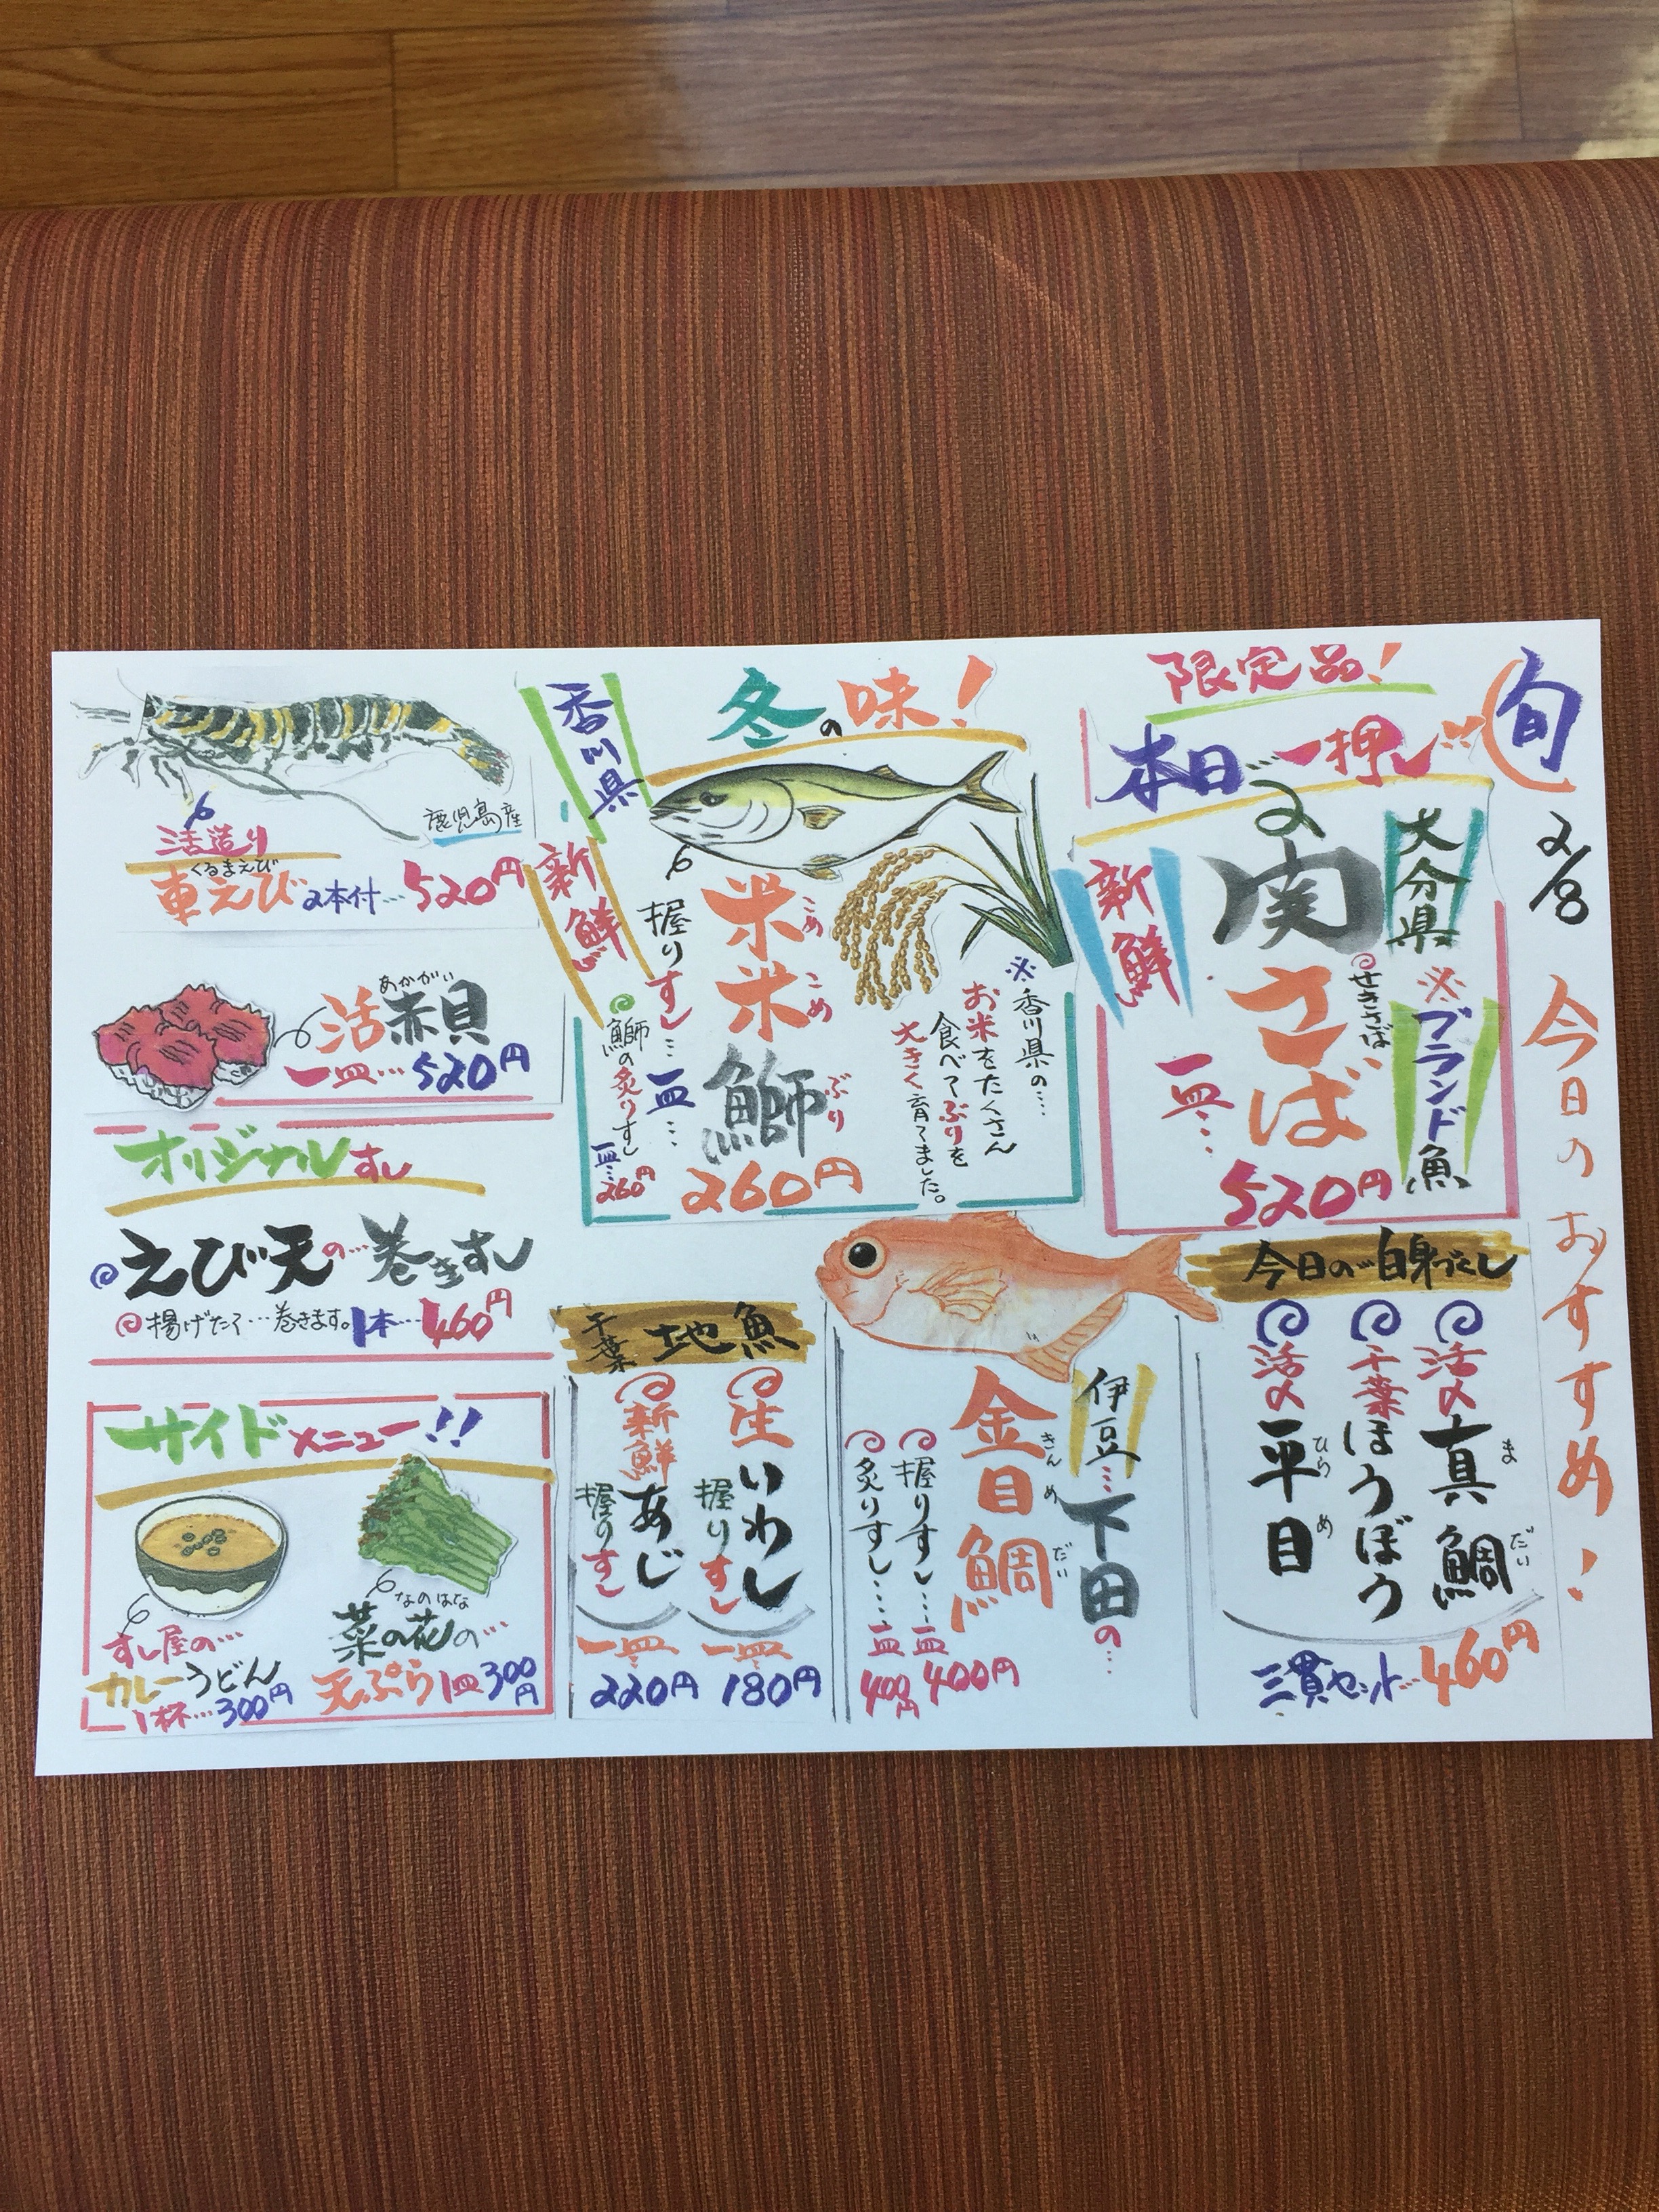 旬
2/8
今日のおすすめ!
限定品!
本日の一押し
大分県
関さば
せきさば
※ブランド魚
新鮮
一皿…
520円
冬の味!
香川県
新鮮
米米鰤
こめこめぶり
握りすし…一皿…
260円
鰤の炙りすし
一皿…260円
※香川県の…
お米をたくさん
食べてぶりを
大きく育てました。
鹿児島産
活造り
くるまえび
車えび2本付…520円
あかがい
活赤貝
一皿…520円
オリジナルすし
えび天の…巻きすし
揚げたて…巻きます。1本…460円
今日の白身づくし
活〆真鯛
まだい
千葉ほうぼう
活〆平目
ひらめ
三貫セット…460円
伊豆…下田の…
金目鯛
きんめだい
握りすし…一皿400円
炙りすし…一皿400円
千葉地魚
生いわし
握りすし
一皿…
180円
新鮮あじ
握りすし
一皿…
220円
サイドメニュー!!
すし屋の…
カレーうどん
1杯…300円
なのはな
菜の花の…
天ぷら1皿300円